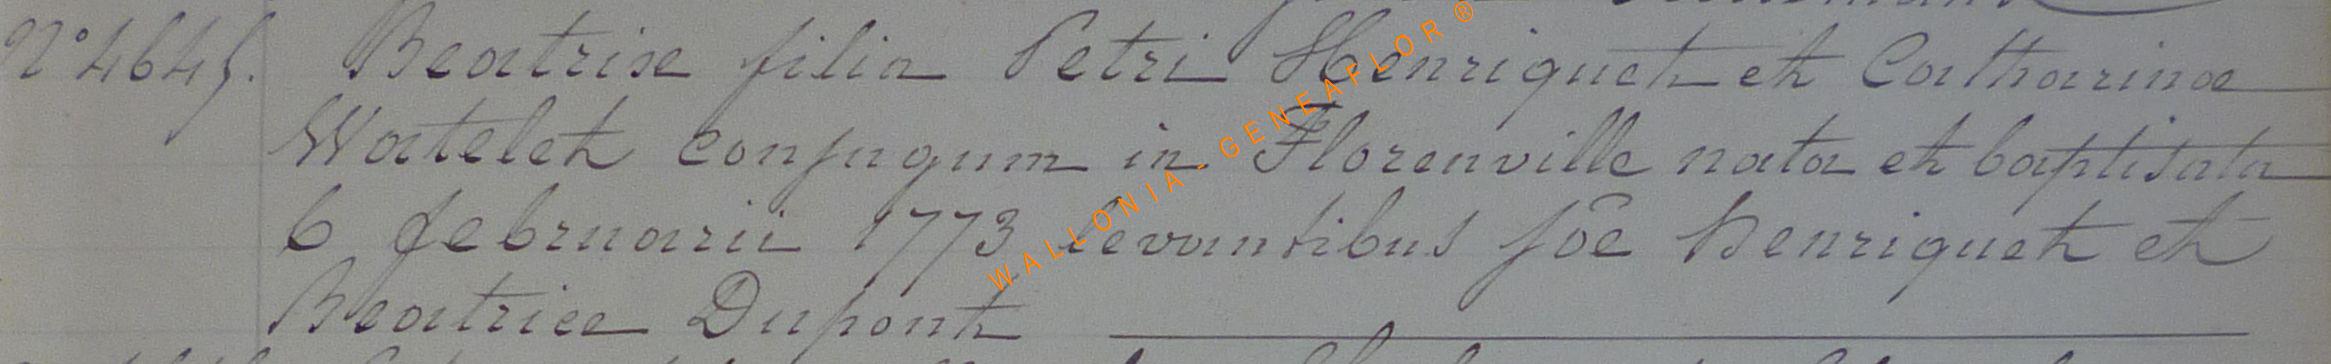 N° 4645. Beatrix filia Petri Henriquet et Catharinae
Watelet conjugum in Florenville nata et baptisata
6 februarii 1773 levantibus Jōe Henriquet et
Beatrice Dupont
WALLONIA - GENEAFLOR ®